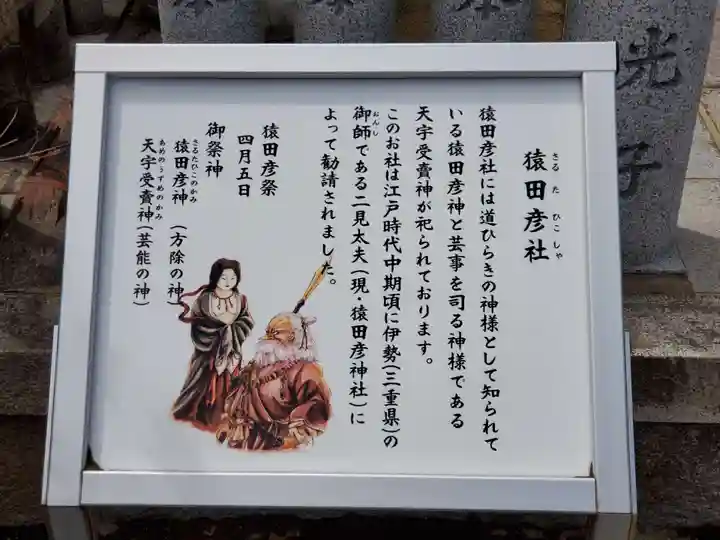 猿田彦社
さるたひこしゃ
猿田彦社には道ひらきの神様として知られて
いる猿田彦神と芸事を司る神様である
天宇受賣神が祀られております。
このお社は江戸時代中期頃に伊勢(三重県)の
御師である二見太夫(現・猿田彦神社)に
おんし
よって勧請されました。
猿田彦祭
四月五日
御祭神
猿田彦神(方除の神)
さるたひこのかみ
天宇受賣神(芸能の神)
あめのうずめのかみ
光子